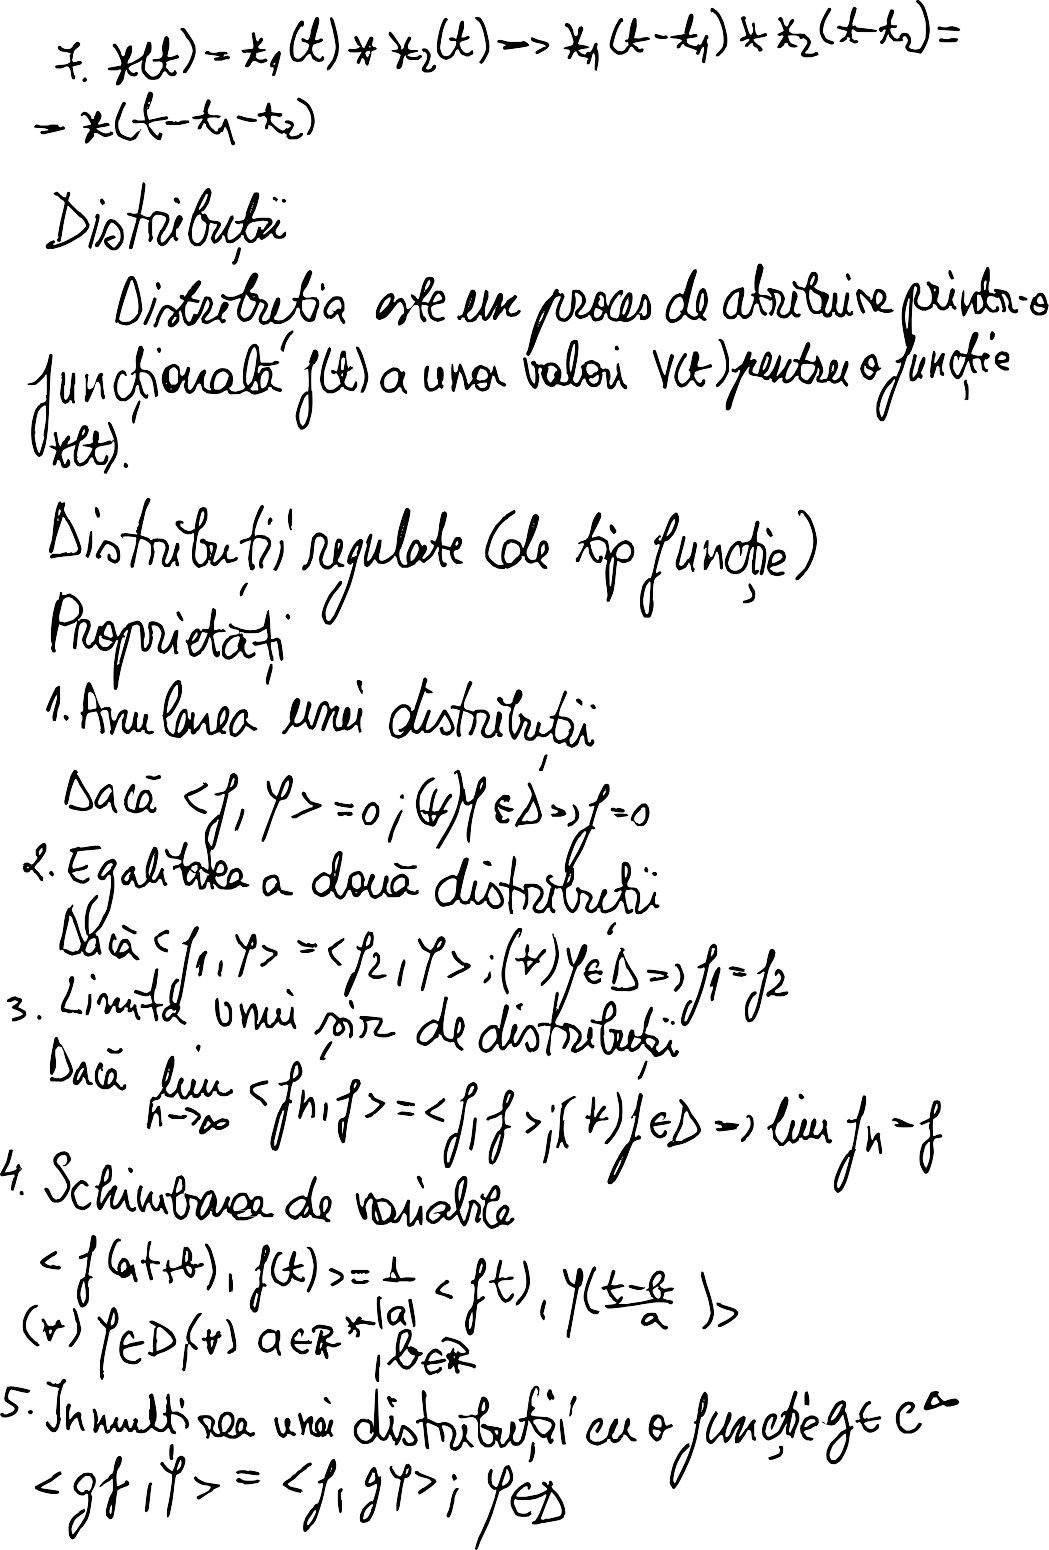 7. x(t) = x₁(t) * x₂(t) -> x₁(t-t₁) * x₂(t-t₂) =
= x(t-t₁-t₂)
Distribuții
Distribuția este un proces de atribuire printr-o
funcțională f(t) a unor valori V(t) pentru o funcție
x(t).
Distribuții regulate (de tip funcție)
Proprietăți
1. Anularea unei distribuții
Dacă <f, φ> = 0 ; (∀) φ ∈ D => f = 0
2. Egalitatea a două distribuții
Dacă <f₁, φ> = <f₂, φ> ; (∀) φ ∈ D => f₁ = f₂
3. Limita unui șir de distribuții
Dacă lim <fn, f> = <f, f> ; (∀) f ∈ D => lim fn = f
n->∞
4. Schimbarea de variabile
<f(at+b), f(t)> = 1/|a| <f t), φ((t-b)/a)>
(∀) φ ∈ D, (∀) a ∈ R*, b ∈ R
5. Inmulțirea unei distribuții cu o funcție g ∈ C^∞
<gf, φ> = <f, gφ> ; φ ∈ D